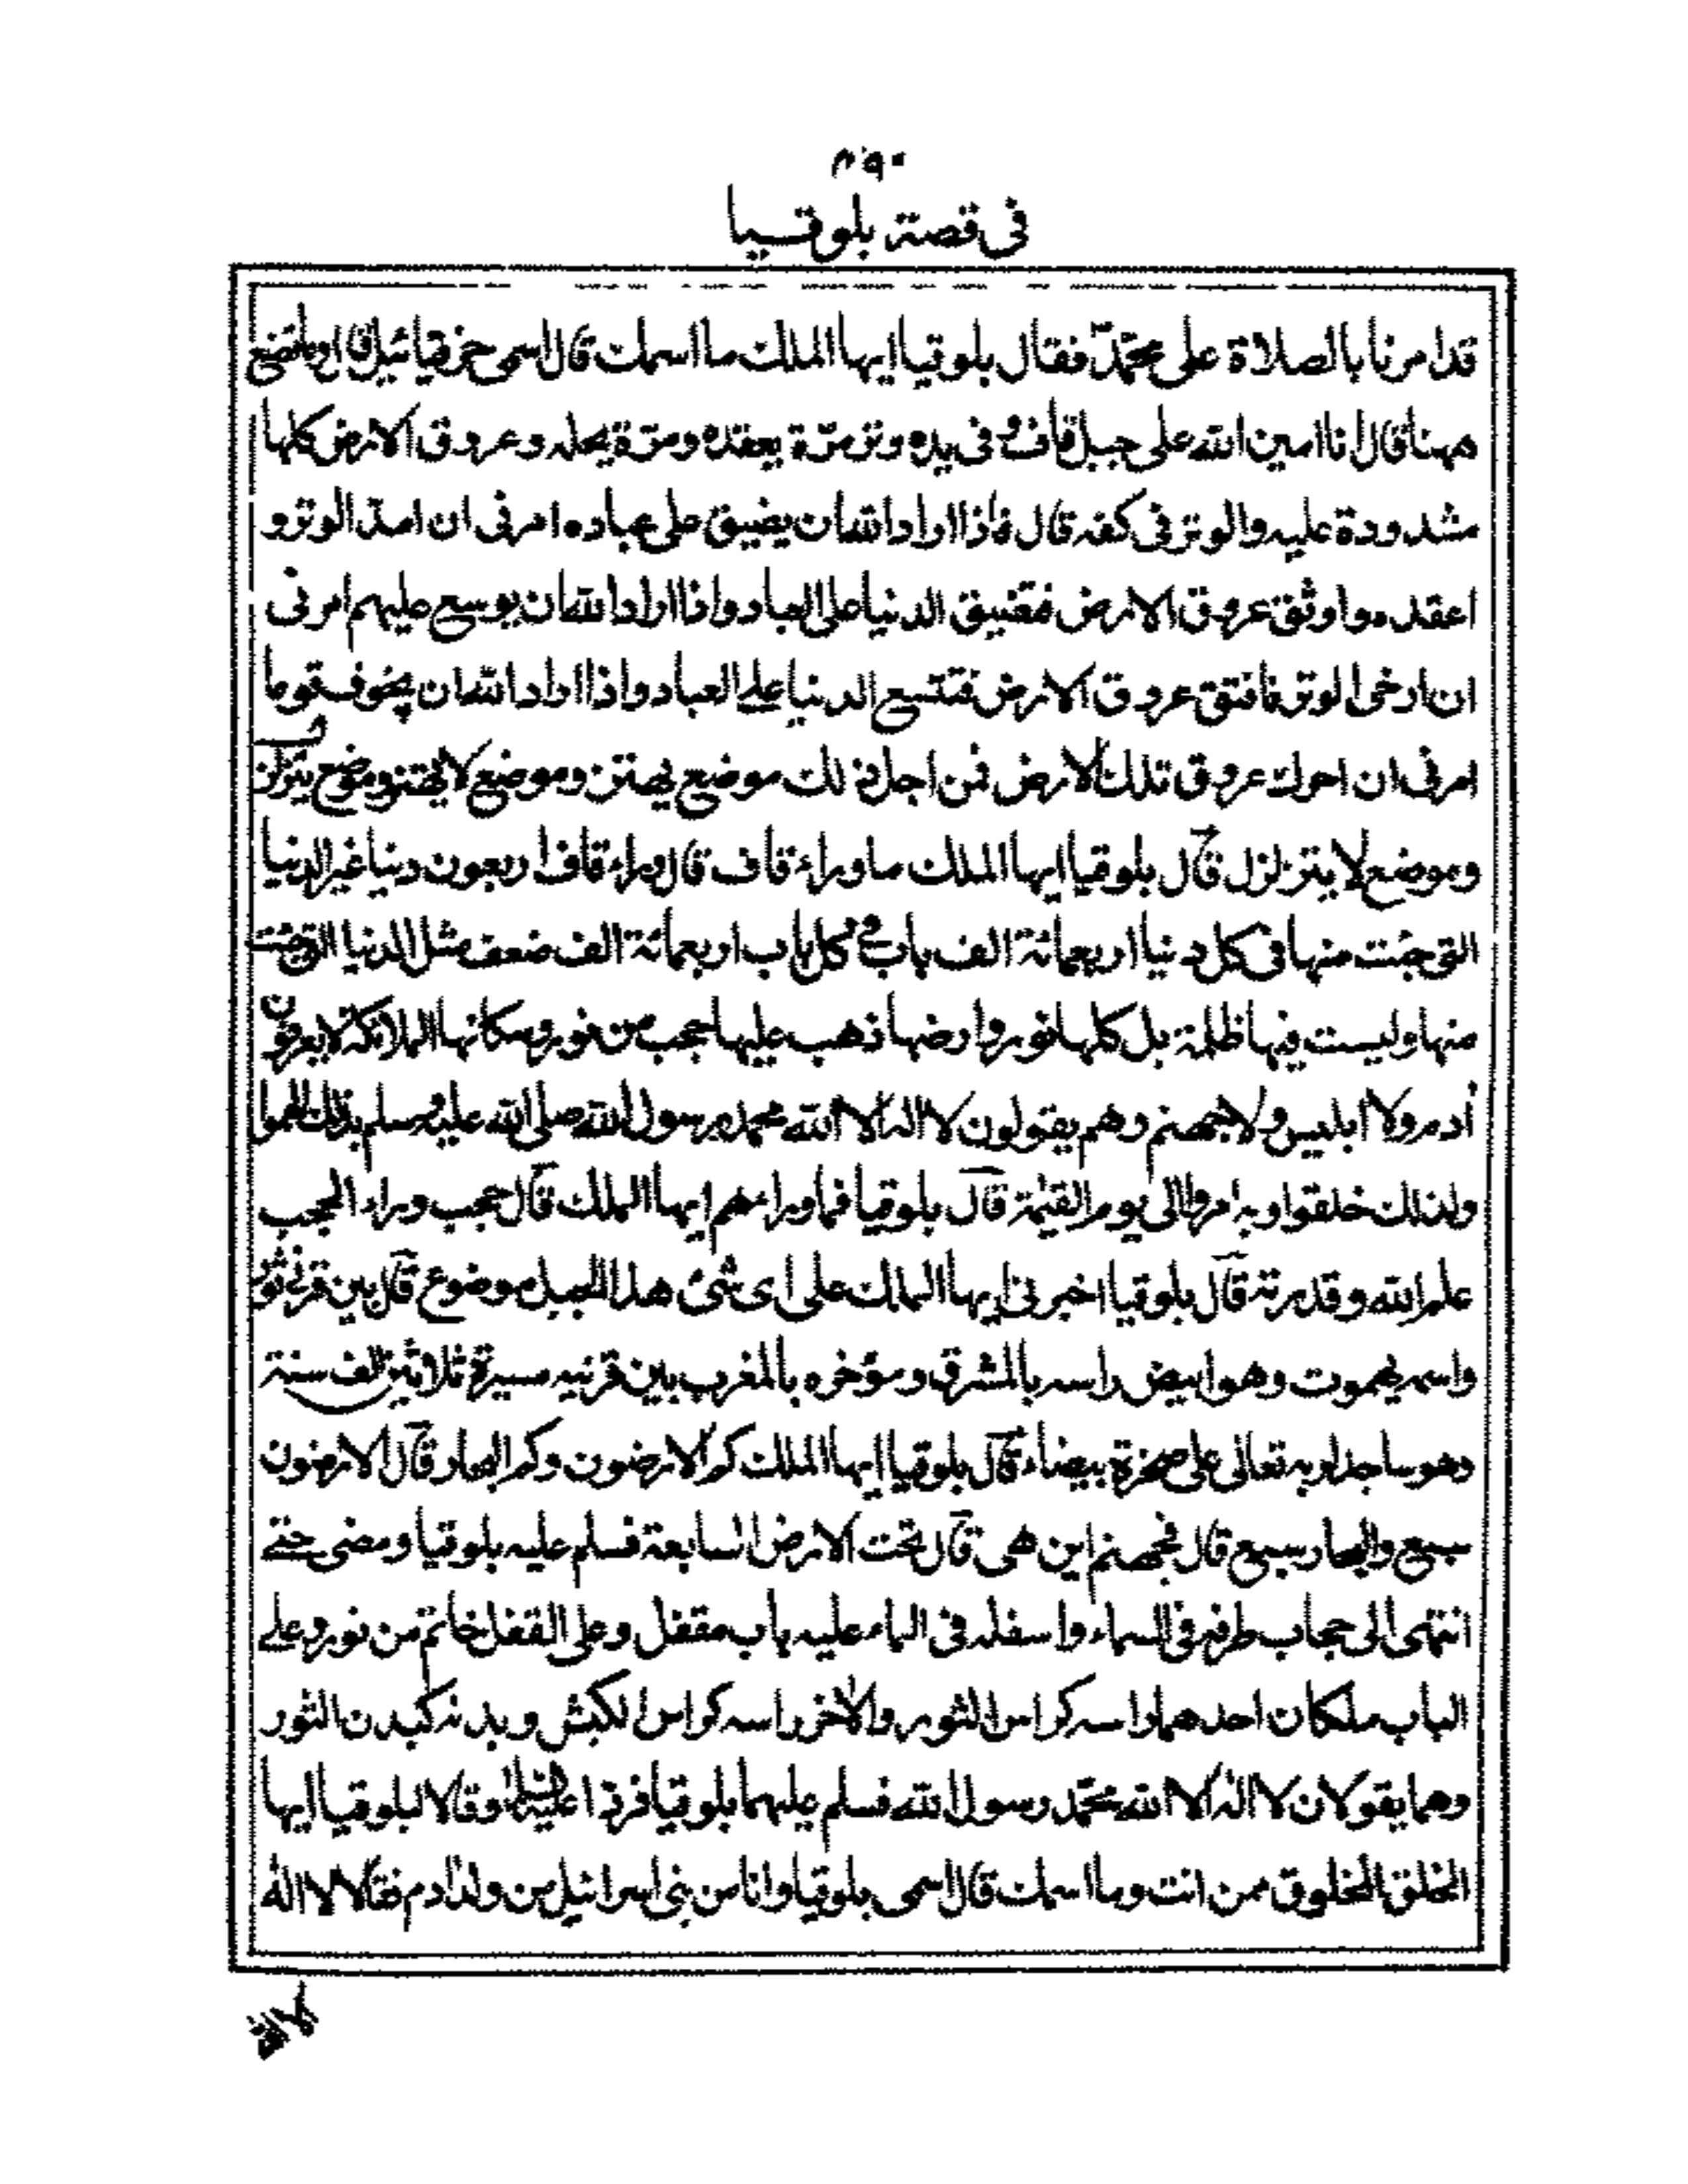 ٤٩٠
في قصة بلوقيا
قد امرنا بالصلاة على محمّد فقال بلوقيا ايها الملك ما اسمك قال اسمى حزقيائيل قال وما تصنع
ههنا قال انا امين الله على جبل قاف وفى يده وتر مرّة يعقده ومرّة يحله وعروق الارض كلها
مشدودة عليه والوتر فى كفه قال فاذا اراد الله ان يضيق على عباده امرنى ان امدّ الوتر و
اعقده واوثق عروق الارض فتضيق الدنيا على العباد واذا اراد الله ان يوسع عليهم امرنى
ان ارخى الوتر فافتق عروق الارض فتتسع الدنيا على العباد واذا اراد الله ان يخوف قوما
امرنى ان احرك عروق تلك الارض فمن اجل ذلك موضع يهتز وموضع لا يهتز وموضع يتزلزل
وموضع لا يتزلزل قال بلوقيا ايها الملك ما وراء قاف قال وراء قاف اربعون دنيا غير الدنيا
التى جئت منها فى كل دنيا اربعمائة الف باب فى كل باب اربعمائة الف ضعف مثل الدنيا التى جئت
منها وليست فيها ظلمة بل كلها نور وارضها ذهب عليها حجب من نور وسكانها الملائكة لا يعرفون
أدم ولا ابليس ولا جهنم وهم يقولون لا اله الا الله محمد رسول الله صلى الله عليه وسلم بذلك الهموا
ولذلك خلقوا وبه امروا الى يوم القيٰمة قال بلوقيا فما وراءهم ايها الملك قال حجب وراء الحجب
علم الله وقدرته قال بلوقيا اخبرنى ايها الملك على اى شئ هذا الجبل موضوع قال بين قرنى ثور
واسمه يهموت وهو ابيض راسه بالمشرق ومؤخره بالمغرب بين قرنيه مسيرة ثلاثين الف سنة
وهو ساجد لربه تعالى على صخرة بيضاء قال بلوقيا ايها الملك كم الارضون وكم البحار قال الارضون
سبع والبحار سبع قال فجهنم اين هى قال تحت الارض السابعة فسلم عليه بلوقيا ومضى حتى
انتهى الى حجاب طرفه فى السماء واسفله فى الماء عليه باب مقفل وعلى القفل خاتم من نور وعلى
الباب ملكان احدهما راسه كراس الثور والاخر راسه كراس الكبش وبدنه كبدن الثور
وهما يقولان لا اله الا الله محمّد رسول الله فسلم عليهما بلوقيا فردّا عليه السلام وقالا لبلوقيا ايها
الخلق المخلوق ممن انت وما اسمك قال اسمى بلوقيا وانا من بنى اسرائيل من ولد ادم فقالا لا اله
الا الله